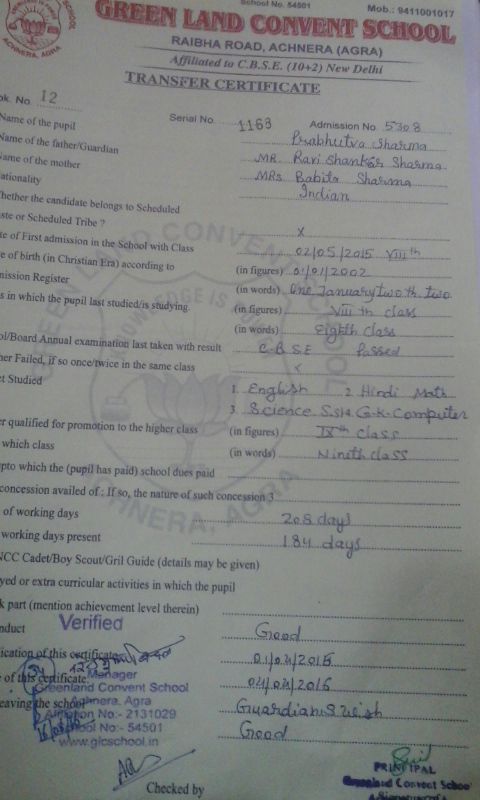 School No. 54501
Mob.: 9411001017
GREEN LAND CONVENT SCHOOL
RAIBHA ROAD, ACHNERA (AGRA)
Affiliated to C.B.S.E. (10+2) New Delhi
TRANSFER CERTIFICATE
ok. No. 12 Serial No. 1163 Admission No 5308
Name of the pupil Prabhutva Sharma
Name of the father/Guardian MR. Ravi Shanker Sharma
Name of the mother MRs Babita Sharma
ationality Indian
hether the candidate belongs to Scheduled
ste or Scheduled Tribe ? x
te of First admission in the School with Class 02/05/2015 VIIIth
e of birth (in Christian Era) according to (in figures) 01/01/2002
mission Register (in words) One January two th two
s in which the pupil last studied/is studying. (in figures) VIIIth class
(in words) Eighth class
ol/Board Annual examination last taken with result C.B.S.E Passed
her Failed, if so once/twice in the same class x
ct Studied 1. English 2. Hindi Math
3. Science S.st G.K. Computer
er qualified for promotion to the higher class (in figures) IXth class
which class (in words) Nineth class
upto which the (pupil has paid) school dues paid
concession availed of : If so, the nature of such concession 3
of working days 208 days
working days present 184 days
NCC Cadet/Boy Scout/Gril Guide (details may be given)
yed or extra curricular activities in which the pupil
k part (mention achievement level therein)
nduct Good
ication of this certificate
of this certificate
eaving the school Guardian's wish
Good
Verified
Manager
Greenland Convent School
Achnera, Agra
Affiliation No:- 2131029
School No:- 54501
www.glcschool.in
Checked by
PRINCIPAL
Greenland Convent School